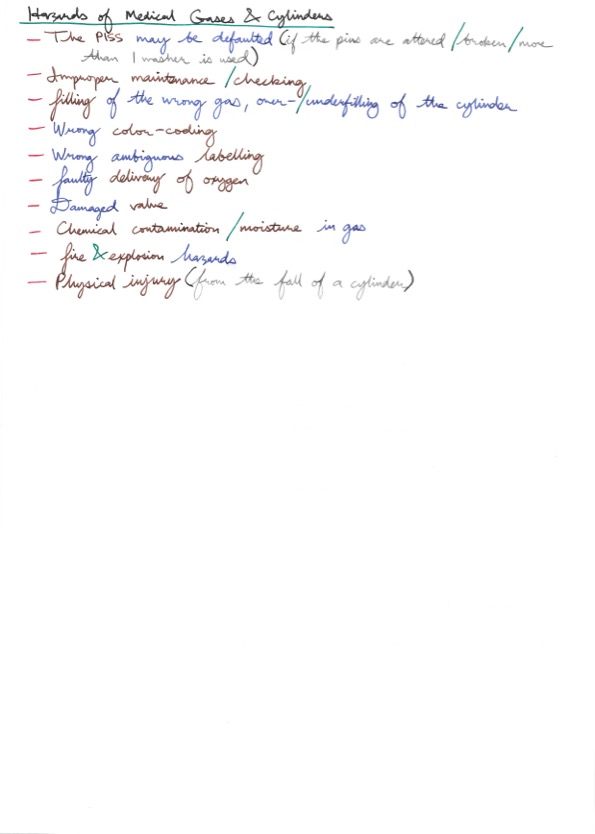 Hazards of Medical Gases & Cylinders
— The PISS may be defaulted (if the pins are altered/broken/more
than 1 washer is used)
— Improper maintenance/checking
— filling of the wrong gas, over-/underfilling of the cylinder
— Wrong color-coding
— Wrong ambiguous labelling
— faulty delivery of oxygen
— Damaged valve
— Chemical contamination/moisture in gas
— fire & explosion hazards
— Physical injury (from the fall of a cylinder)